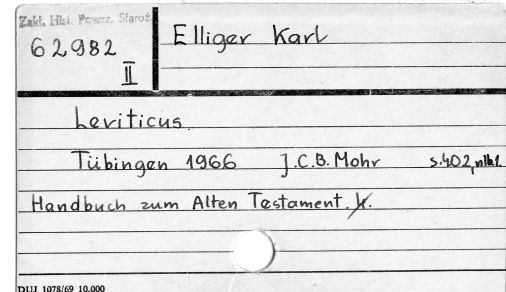 Zakł. Hist. Powsz. Staroż.
62982
II
Elliger Karl
Leviticus
Tübingen 1966 J.C.B. Mohr s.402, nlb1.
Handbuch zum Alten Testament. 4.
DUJ 1078/69 10.000